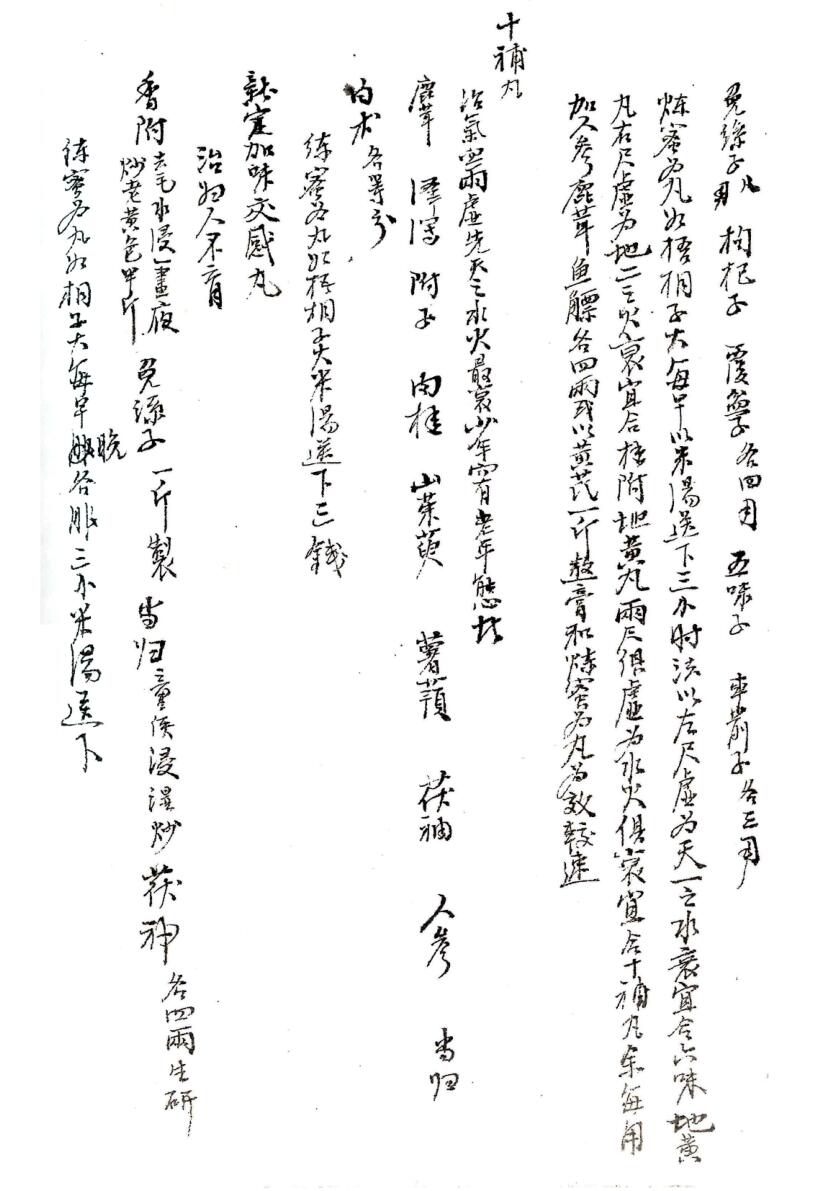 兔絲子 枸杞子 覆盆子各四両 五味子 車前子各三両
炼蜜为丸如梧桐子大每早以米湯送下三小时法以左尺虛为天一之水衰宜合六味地黃
丸右尺虛为地二之火衰宜合桂附地黃丸兩尺俱虛为水火俱衰宜合十補丸余每用
加人参鹿茸魚膘各四兩或以黃芪一斤熬膏和炼蜜为丸为效較速
十補丸
治氣血兩虛先天之水火最衰少年而有老年態者
鹿茸 澤瀉 附子 肉桂 山茱萸 薯蕷 茯神 人參 当归
白术各等分
练蜜为丸如梧桐子大米湯送下三錢
新定加味交感丸
治妇人不育
香附去毛水浸一晝夜炒老黃色半斤 兔絲子一斤製 当归童便浸湿炒 茯神各四兩生研
练蜜为丸如桐子大每早晚各服三小米湯送下